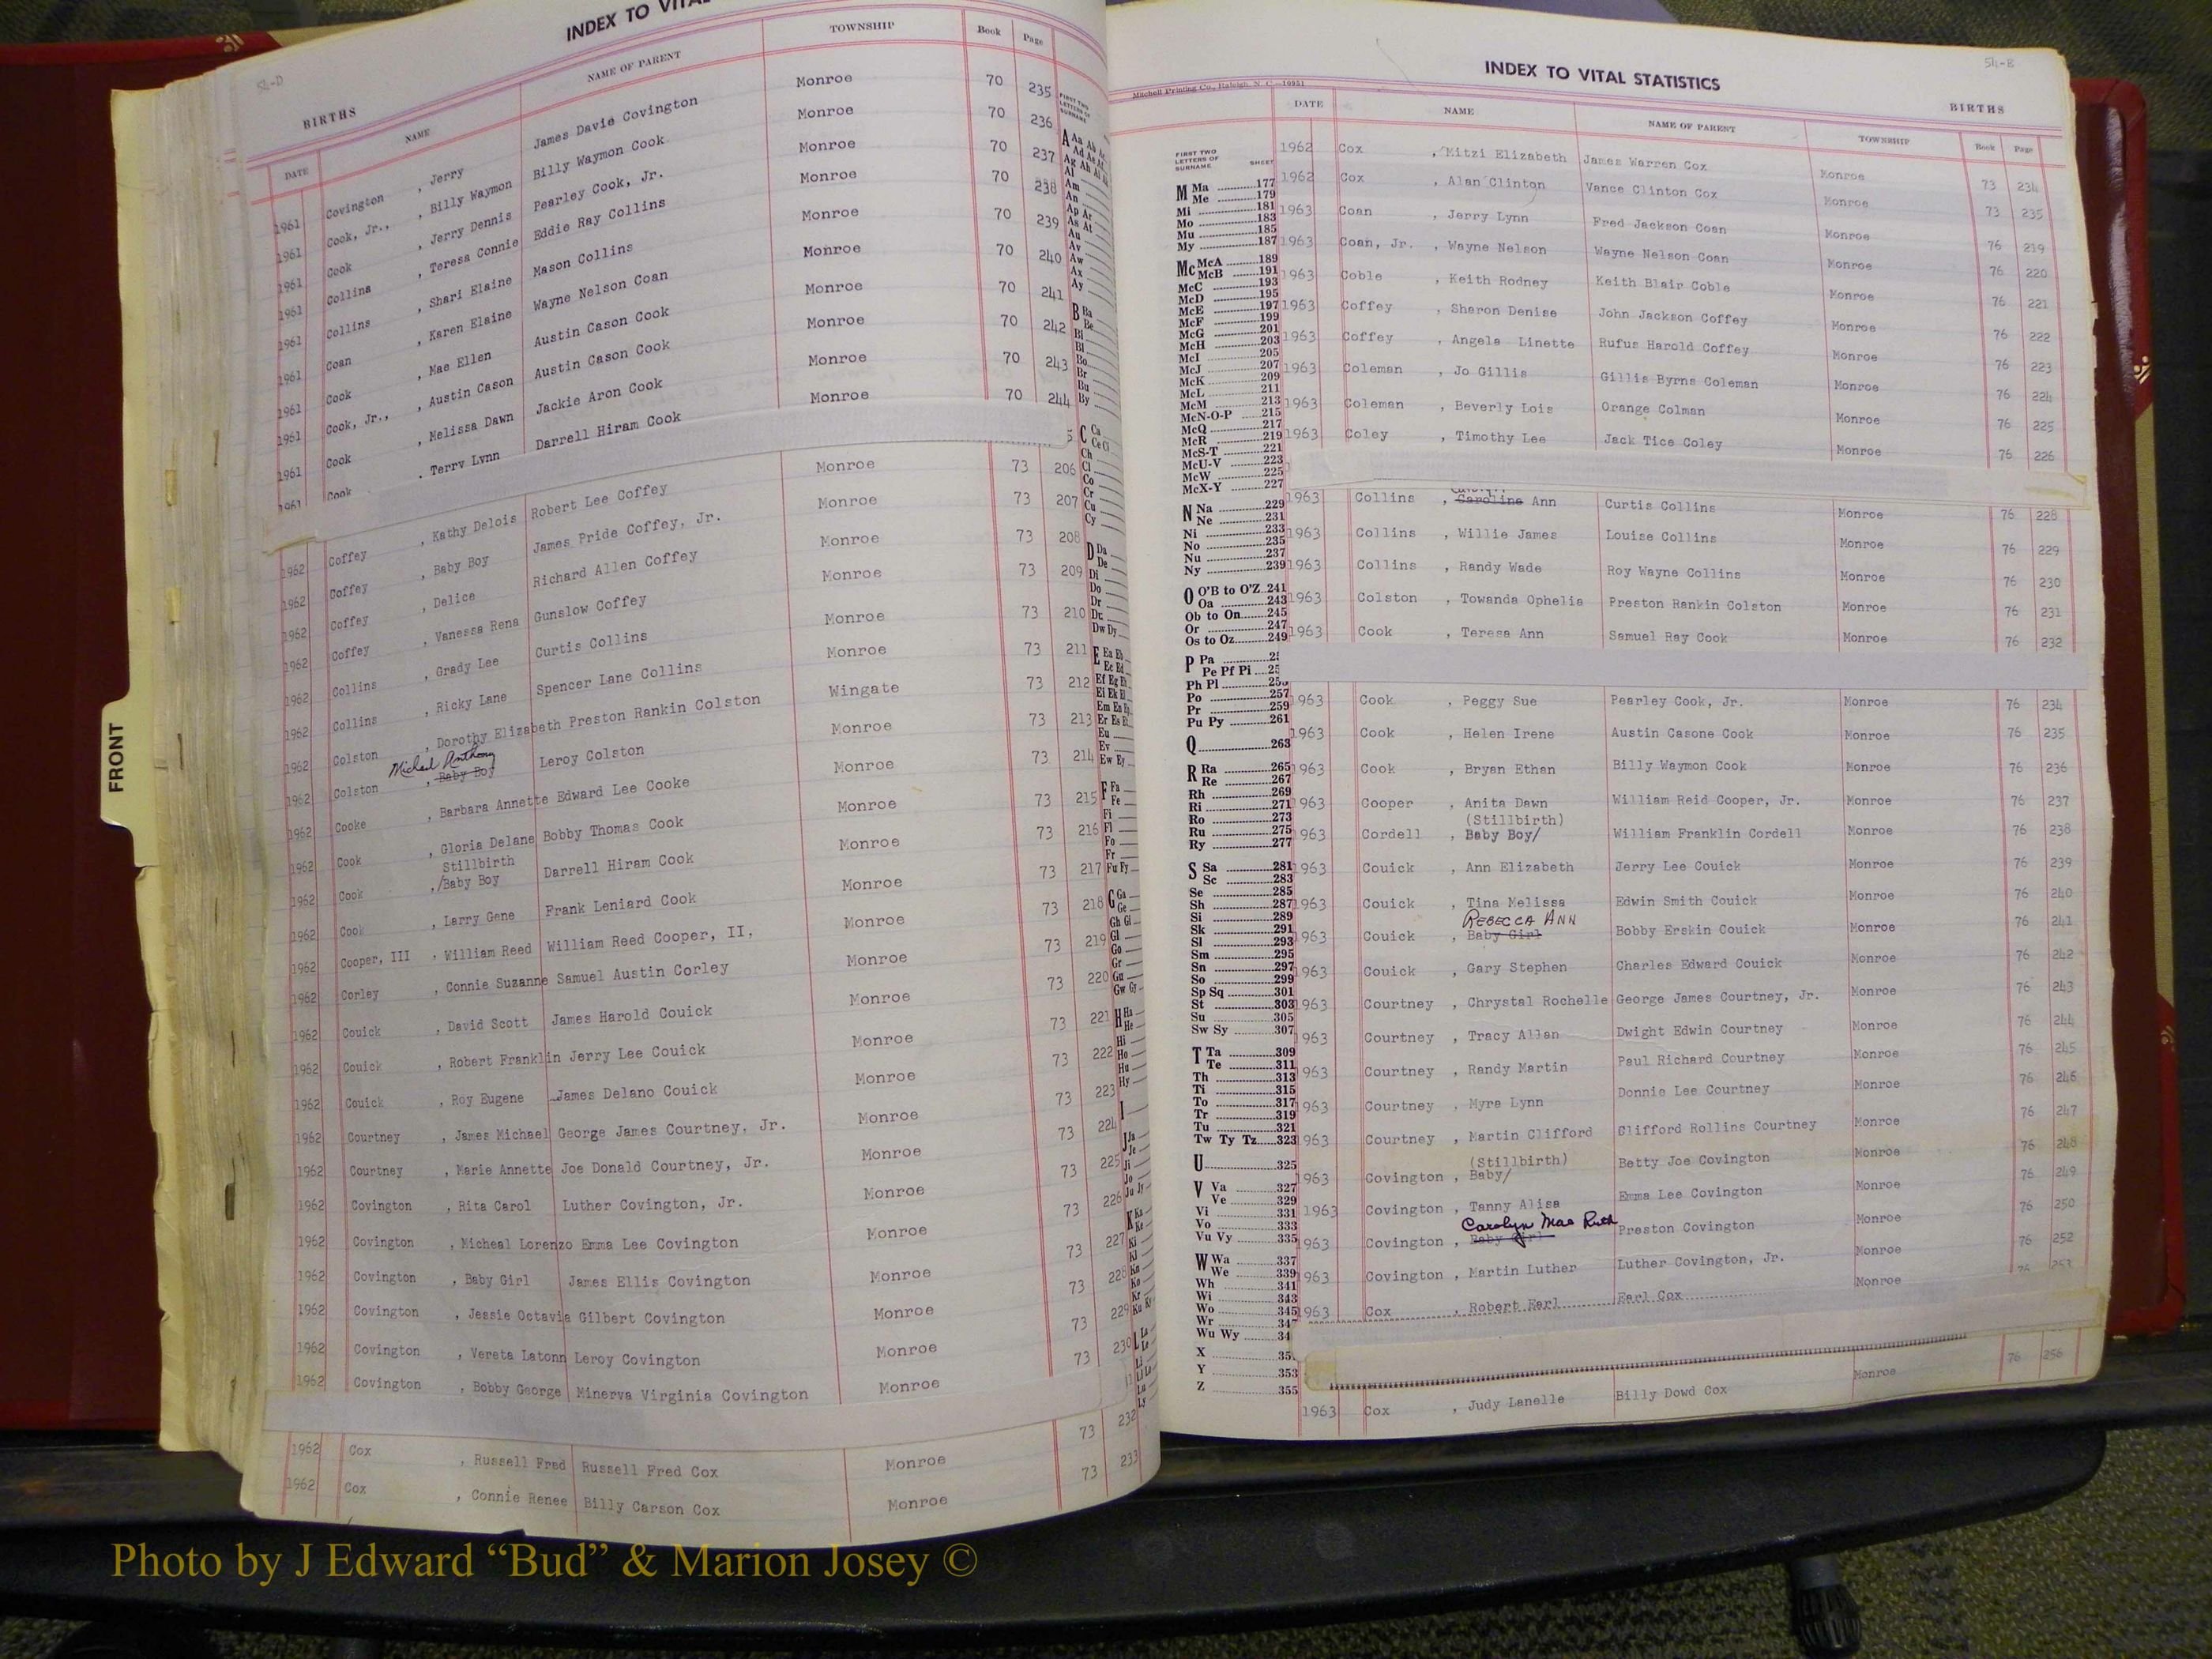 54-D
INDEX TO VITAL
BIRTHS
DATE NAME NAME OF PARENT TOWNSHIP Book Page
1961 Covington , Jerry James Davie Covington Monroe 70 235
1961 Cook, Jr., , Billy Waymon Billy Waymon Cook Monroe 70 236
1961 Cook , Jerry Dennis Pearley Cook, Jr. Monroe 70 237
1961 Collins , Teresa Connie Eddie Ray Collins Monroe 70 238
1961 Collins , Shari Elaine Mason Collins Monroe 70 239
1961 Coan , Karen Elaine Wayne Nelson Coan Monroe 70 240
1961 Cook , Mae Ellen Austin Cason Cook Monroe 70 241
1961 Cook, Jr., , Austin Cason Austin Cason Cook Monroe 70 242
1961 Cook , Melissa Dawn Jackie Aron Cook Monroe 70 243
1961 Cook , Terry Lynn Darrell Hiram Cook Monroe 70 244
1962 Coffey , Kathy Delois Robert Lee Coffey Monroe 73 206
1962 Coffey , Baby Boy James Pride Coffey, Jr. Monroe 73 207
1962 Coffey , Delice Richard Allen Coffey Monroe 73 208
1962 Coffey , Vanessa Rena Gunslow Coffey Monroe 73 209
1962 Collins , Grady Lee Curtis Collins Monroe 73 210
1962 Collins , Ricky Lane Spencer Lane Collins Monroe 73 211
1962 Colston , Dorothy Elizabeth Preston Rankin Colston Wingate 73 212
Micheal Anthony
1962 Colston , Baby Boy Leroy Colston Monroe 73 213
1962 Cooke , Barbara Annette Edward Lee Cooke Monroe 73 214
1962 Cook , Gloria Delane Bobby Thomas Cook Monroe 73 215
Stillbirth
1962 Cook ,/Baby Boy Darrell Hiram Cook Monroe 73 216
1962 Cook , Larry Gene Frank Leniard Cook Monroe 73 217
1962 Cooper, III , William Reed William Reed Cooper, II, Monroe 73 218
1962 Corley , Connie Suzanne Samuel Austin Corley Monroe 73 219
1962 Couick , David Scott James Harold Couick Monroe 73 220
1962 Couick , Robert Franklin Jerry Lee Couick Monroe 73 221
1962 Couick , Roy Eugene James Delano Couick Monroe 73 222
1962 Courtney , James Michael George James Courtney, Jr. Monroe 73 223
1962 Courtney , Marie Annette Joe Donald Courtney, Jr. Monroe 73 224
1962 Covington , Rita Carol Luther Covington, Jr. Monroe 73 225
1962 Covington , Micheal Lorenzo Emma Lee Covington Monroe 73 226
1962 Covington , Baby Girl James Ellis Covington Monroe 73 227
1962 Covington , Jessie Octavia Gilbert Covington Monroe 73 228
1962 Covington , Vereta Latonn Leroy Covington Monroe 73 229
1962 Covington , Bobby George Minerva Virginia Covington Monroe 73 230
1962 Cox , Russell Fred Russell Fred Cox Monroe 73 232
1962 Cox , Connie Renee Billy Carson Cox Monroe 73 233
FRONT
54-B
INDEX TO VITAL STATISTICS
Mitchell Printing Co., Raleigh, N. C.—10951
BIRTHS
DATE NAME NAME OF PARENT TOWNSHIP Book Page
1962 Cox , Mitzi Elizabeth James Warren Cox Monroe 73 234
1962 Cox , Alan Clinton Vance Clinton Cox Monroe 73 235
1963 Coan , Jerry Lynn Fred Jackson Coan Monroe 76 219
1963 Coan, Jr. , Wayne Nelson Wayne Nelson Coan Monroe 76 220
1963 Coble , Keith Rodney Keith Blair Coble Monroe 76 221
1963 Coffey , Sharon Denise John Jackson Coffey Monroe 76 222
1963 Coffey , Angela Linette Rufus Harold Coffey Monroe 76 223
1963 Coleman , Jo Gillis Gillis Byrns Coleman Monroe 76 224
1963 Coleman , Beverly Lois Orange Colman Monroe 76 225
1963 Coley , Timothy Lee Jack Tice Coley Monroe 76 226
1963 Collins , Caroline Ann Curtis Collins Monroe 76 228
1963 Collins , Willie James Louise Collins Monroe 76 229
1963 Collins , Randy Wade Roy Wayne Collins Monroe 76 230
1963 Colston , Towanda Ophelia Preston Rankin Colston Monroe 76 231
1963 Cook , Teresa Ann Samuel Ray Cook Monroe 76 232
1963 Cook , Peggy Sue Pearley Cook, Jr. Monroe 76 234
1963 Cook , Helen Irene Austin Casone Cook Monroe 76 235
1963 Cook , Bryan Ethan Billy Waymon Cook Monroe 76 236
1963 Cooper , Anita Dawn William Reid Cooper, Jr. Monroe 76 237
(Stillbirth)
1963 Cordell , Baby Boy/ William Franklin Cordell Monroe 76 238
1963 Couick , Ann Elizabeth Jerry Lee Couick Monroe 76 239
1963 Couick , Tina Melissa Edwin Smith Couick Monroe 76 240
REBECCA ANN
1963 Couick , Baby Girl Bobby Erskin Couick Monroe 76 241
1963 Couick , Gary Stephen Charles Edward Couick Monroe 76 242
1963 Courtney , Chrystal Rochelle George James Courtney, Jr. Monroe 76 243
1963 Courtney , Tracy Allan Dwight Edwin Courtney Monroe 76 244
1963 Courtney , Randy Martin Paul Richard Courtney Monroe 76 245
1963 Courtney , Myra Lynn Donnie Lee Courtney Monroe 76 246
1963 Courtney , Martin Clifford Clifford Rollins Courtney Monroe 76 247
(Stillbirth)
1963 Covington , Baby/ Betty Joe Covington Monroe 76 248
1963 Covington , Tanny Alisa Emma Lee Covington Monroe 76 249
Carolyn Mae Ruth
1963 Covington , Baby Girl Preston Covington Monroe 76 250
1963 Covington , Martin Luther Luther Covington, Jr. Monroe 76 252
1963 Cox , Robert Earl Earl Cox Monroe
1963 Cox , Judy Lanelle Billy Dowd Cox Monroe 76 256
FIRST TWO LETTERS OF SURNAME SHEET
M Ma 177
Me 179
Mi 181
Mo 183
Mu 185
My 187
Mc McA 189
McB 191
McC 193
McD 195
McE 197
McF 199
McG 201
McH 203
McI 205
McJ 207
McK 209
McL 211
McM 213
McN-O-P 215
McQ 217
McR 219
McS-T 221
McU-V 223
McW 225
McX-Y 227
N Na 229
Ne 231
Ni 233
No 235
Nu 237
Ny 239
O O'B to O'Z 241
Oa 243
Ob to On 245
Or 247
Os to Oz 249
P Pa
Pe Pf Pi
Ph Pl
Po 257
Pr 259
Pu Py 261
Q 263
R Ra 265
Re 267
Rh 269
Ri 271
Ro 273
Ru 275
Ry 277
S Sa 281
Sc 283
Se 285
Sh 287
Si 289
Sk 291
Sl 293
Sm 295
Sn 297
So 299
Sp Sq 301
St 303
Su 305
Sw Sy 307
T Ta 309
Te 311
Th 313
Ti 315
To 317
Tr 319
Tu 321
Tw Ty Tz 323
U 325
V Va 327
Ve 329
Vi 331
Vo 333
Vu Vy 335
W Wa 337
We 339
Wh 341
Wi 343
Wo 345
Wr
Wu Wy
X
Y 353
Z 355
Photo by J Edward “Bud” & Marion Josey ©